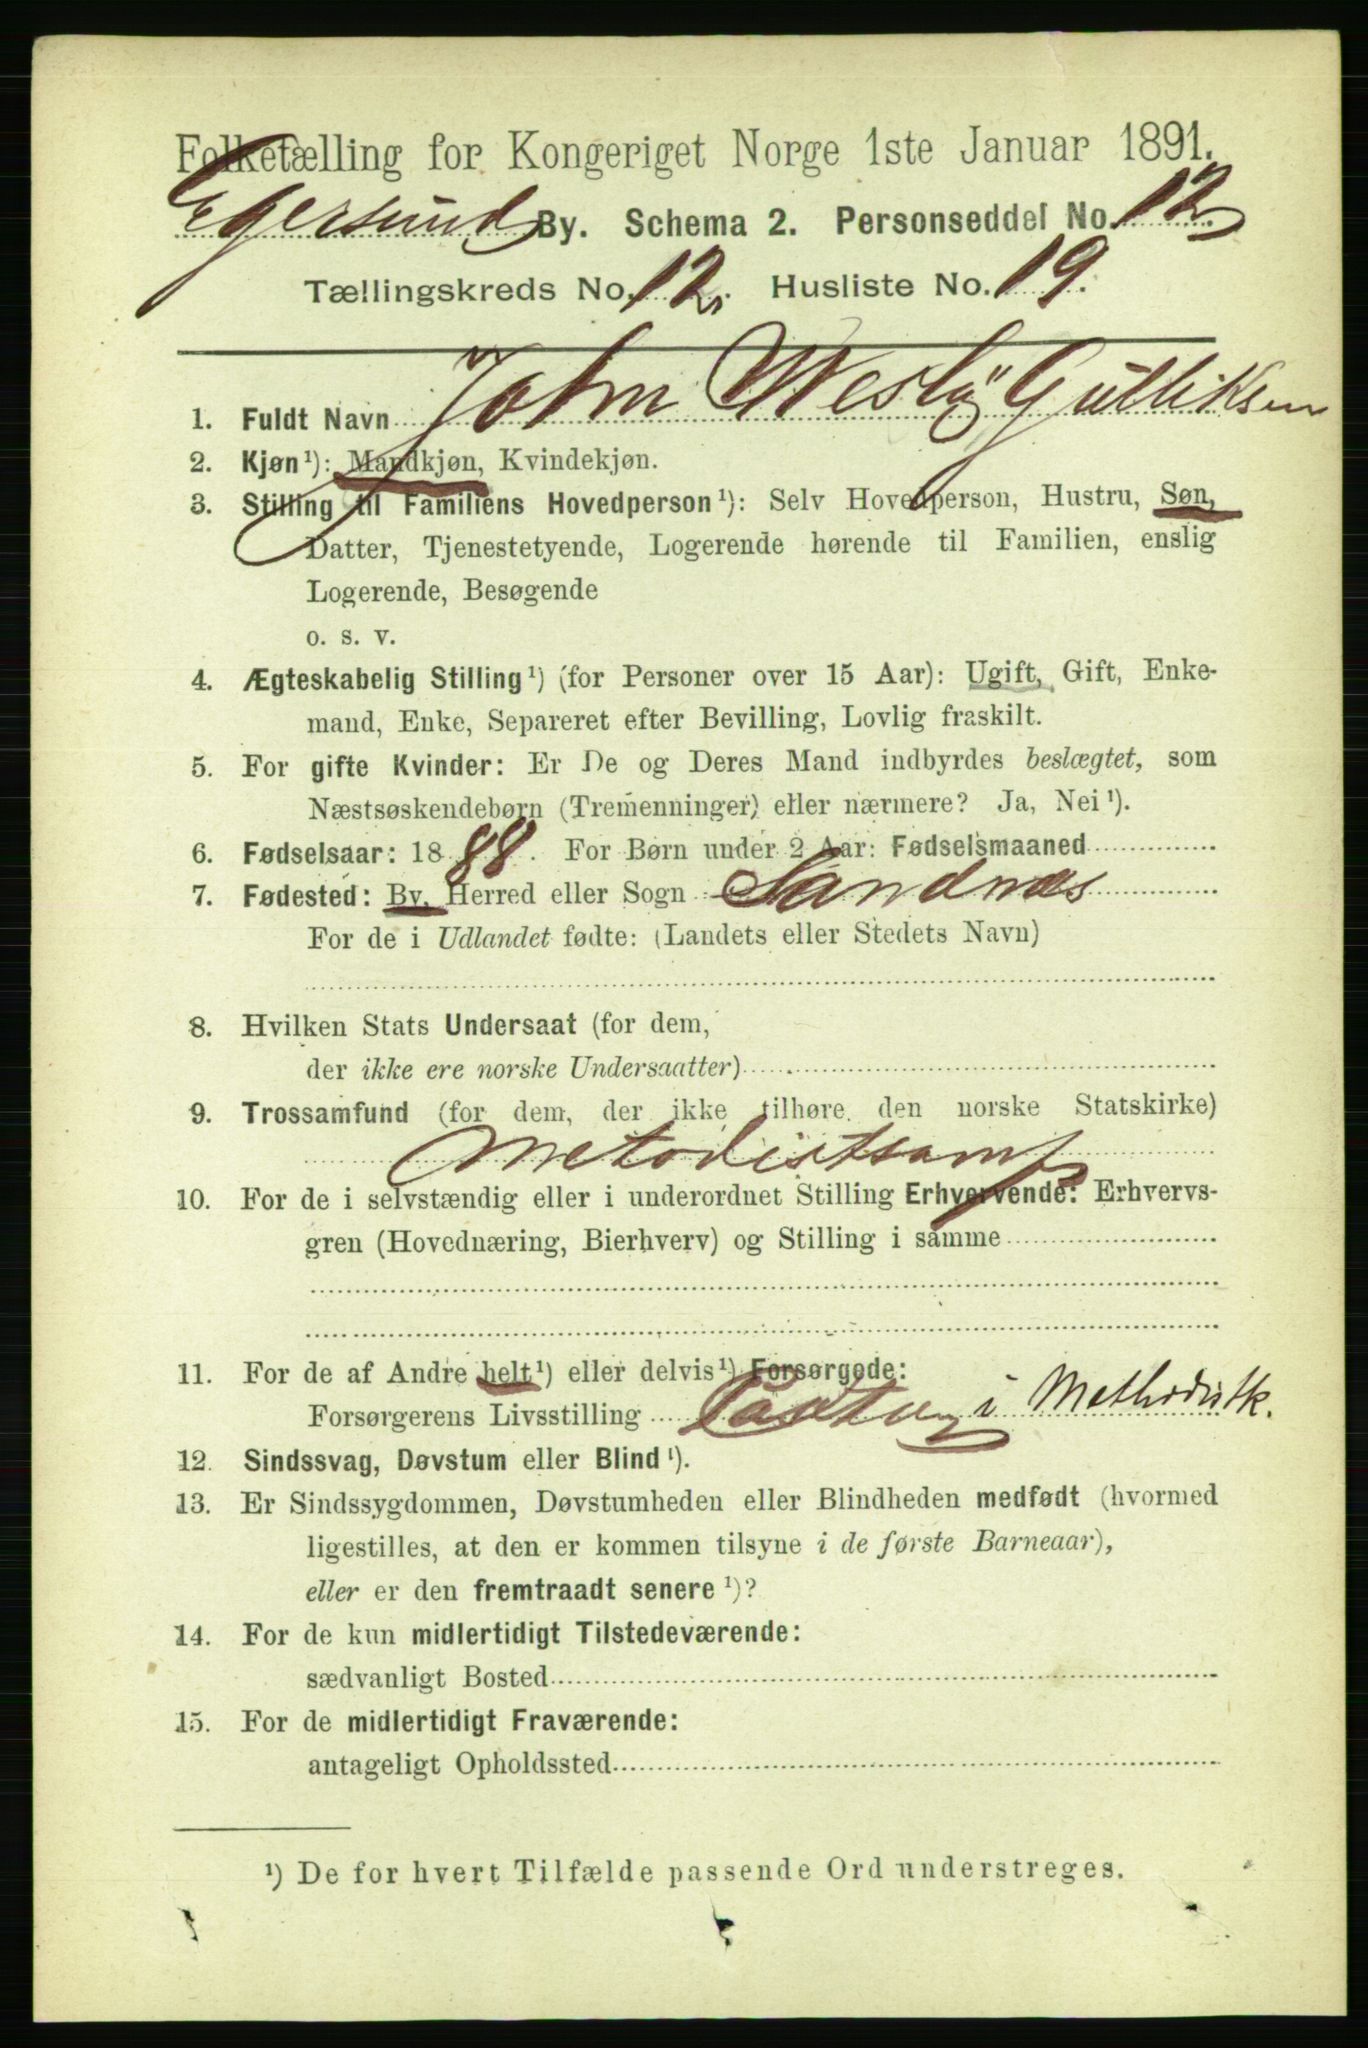 Folketælling for Kongeriget Norge 1ste Januar 1891.
Egersund By. Schema 2. Personseddel No. 12
Tællingskreds No. 12. Husliste No. 19.
1. Fuldt Navn John Wesley Gulliksen
2. Kjøn¹): Mandkjøn, Kvindekjøn.
3. Stilling til Familiens Hovedperson¹): Selv Hovedperson, Hustru, Søn,
Datter, Tjenestetyende, Logerende hørende til Familien, enslig
Logerende, Besøgende
o. s. v.
4. Ægteskabelig Stilling¹) (for Personer over 15 Aar): Ugift, Gift, Enke-
mand, Enke, Separeret efter Bevilling, Lovlig fraskilt.
5. For gifte Kvinder: Er De og Deres Mand indbyrdes beslægtet, som
Næstsøskendebørn (Tremenninger) eller nærmere? Ja, Nei¹).
6. Fødselsaar: 1888. For Børn under 2 Aar: Fødselsmaaned
7. Fødested: By, Herred eller Sogn Sandnæs
For de i Udlandet fødte: (Landets eller Stedets Navn)
8. Hvilken Stats Undersaat (for dem,
der ikke ere norske Undersaatter)
9. Trossamfund (for dem, der ikke tilhøre den norske Statskirke)
Metodistsamf
10. For de i selvstændig eller i underordnet Stilling Erhvervende: Erhvervs-
gren (Hovednæring, Bierhverv) og Stilling i samme
11. For de af Andre helt¹) eller delvis¹) Forsørgede:
Forsørgerens Livsstilling Pastor i Methodistk.
12. Sindssvag, Døvstum eller Blind¹).
13. Er Sindssygdommen, Døvstumheden eller Blindheden medfødt (hvormed
ligestilles, at den er kommen tilsyne i de første Barneaar),
eller er den fremtraadt senere¹)?
14. For de kun midlertidigt Tilstedeværende:
sædvanligt Bosted
15. For de midlertidigt Fraværende:
antageligt Opholdssted
¹) De for hvert Tilfælde passende Ord understreges.